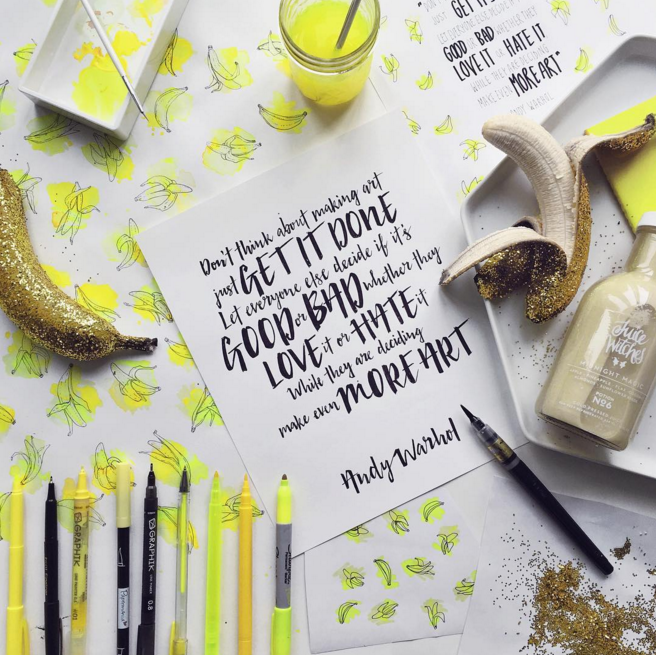 Don't think about making art
just GET IT DONE
Let everyone else decide if it's
GOOD or BAD whether they
LOVE it or HATE it
While they are deciding
make even MORE ART
Andy Warhol
GET IT
LET EVERYONE ELSE DECIDE
GOOD BAD WHETHER THEY
LOVE IT OR HATE IT
WHILE THEY ARE DECIDING
MAKE EVEN MORE ART"
ANDY WARHOL
Juse
Witches
MIDNIGHT
POTION
No6
GRAPHIK
GRAPHIK
0.8